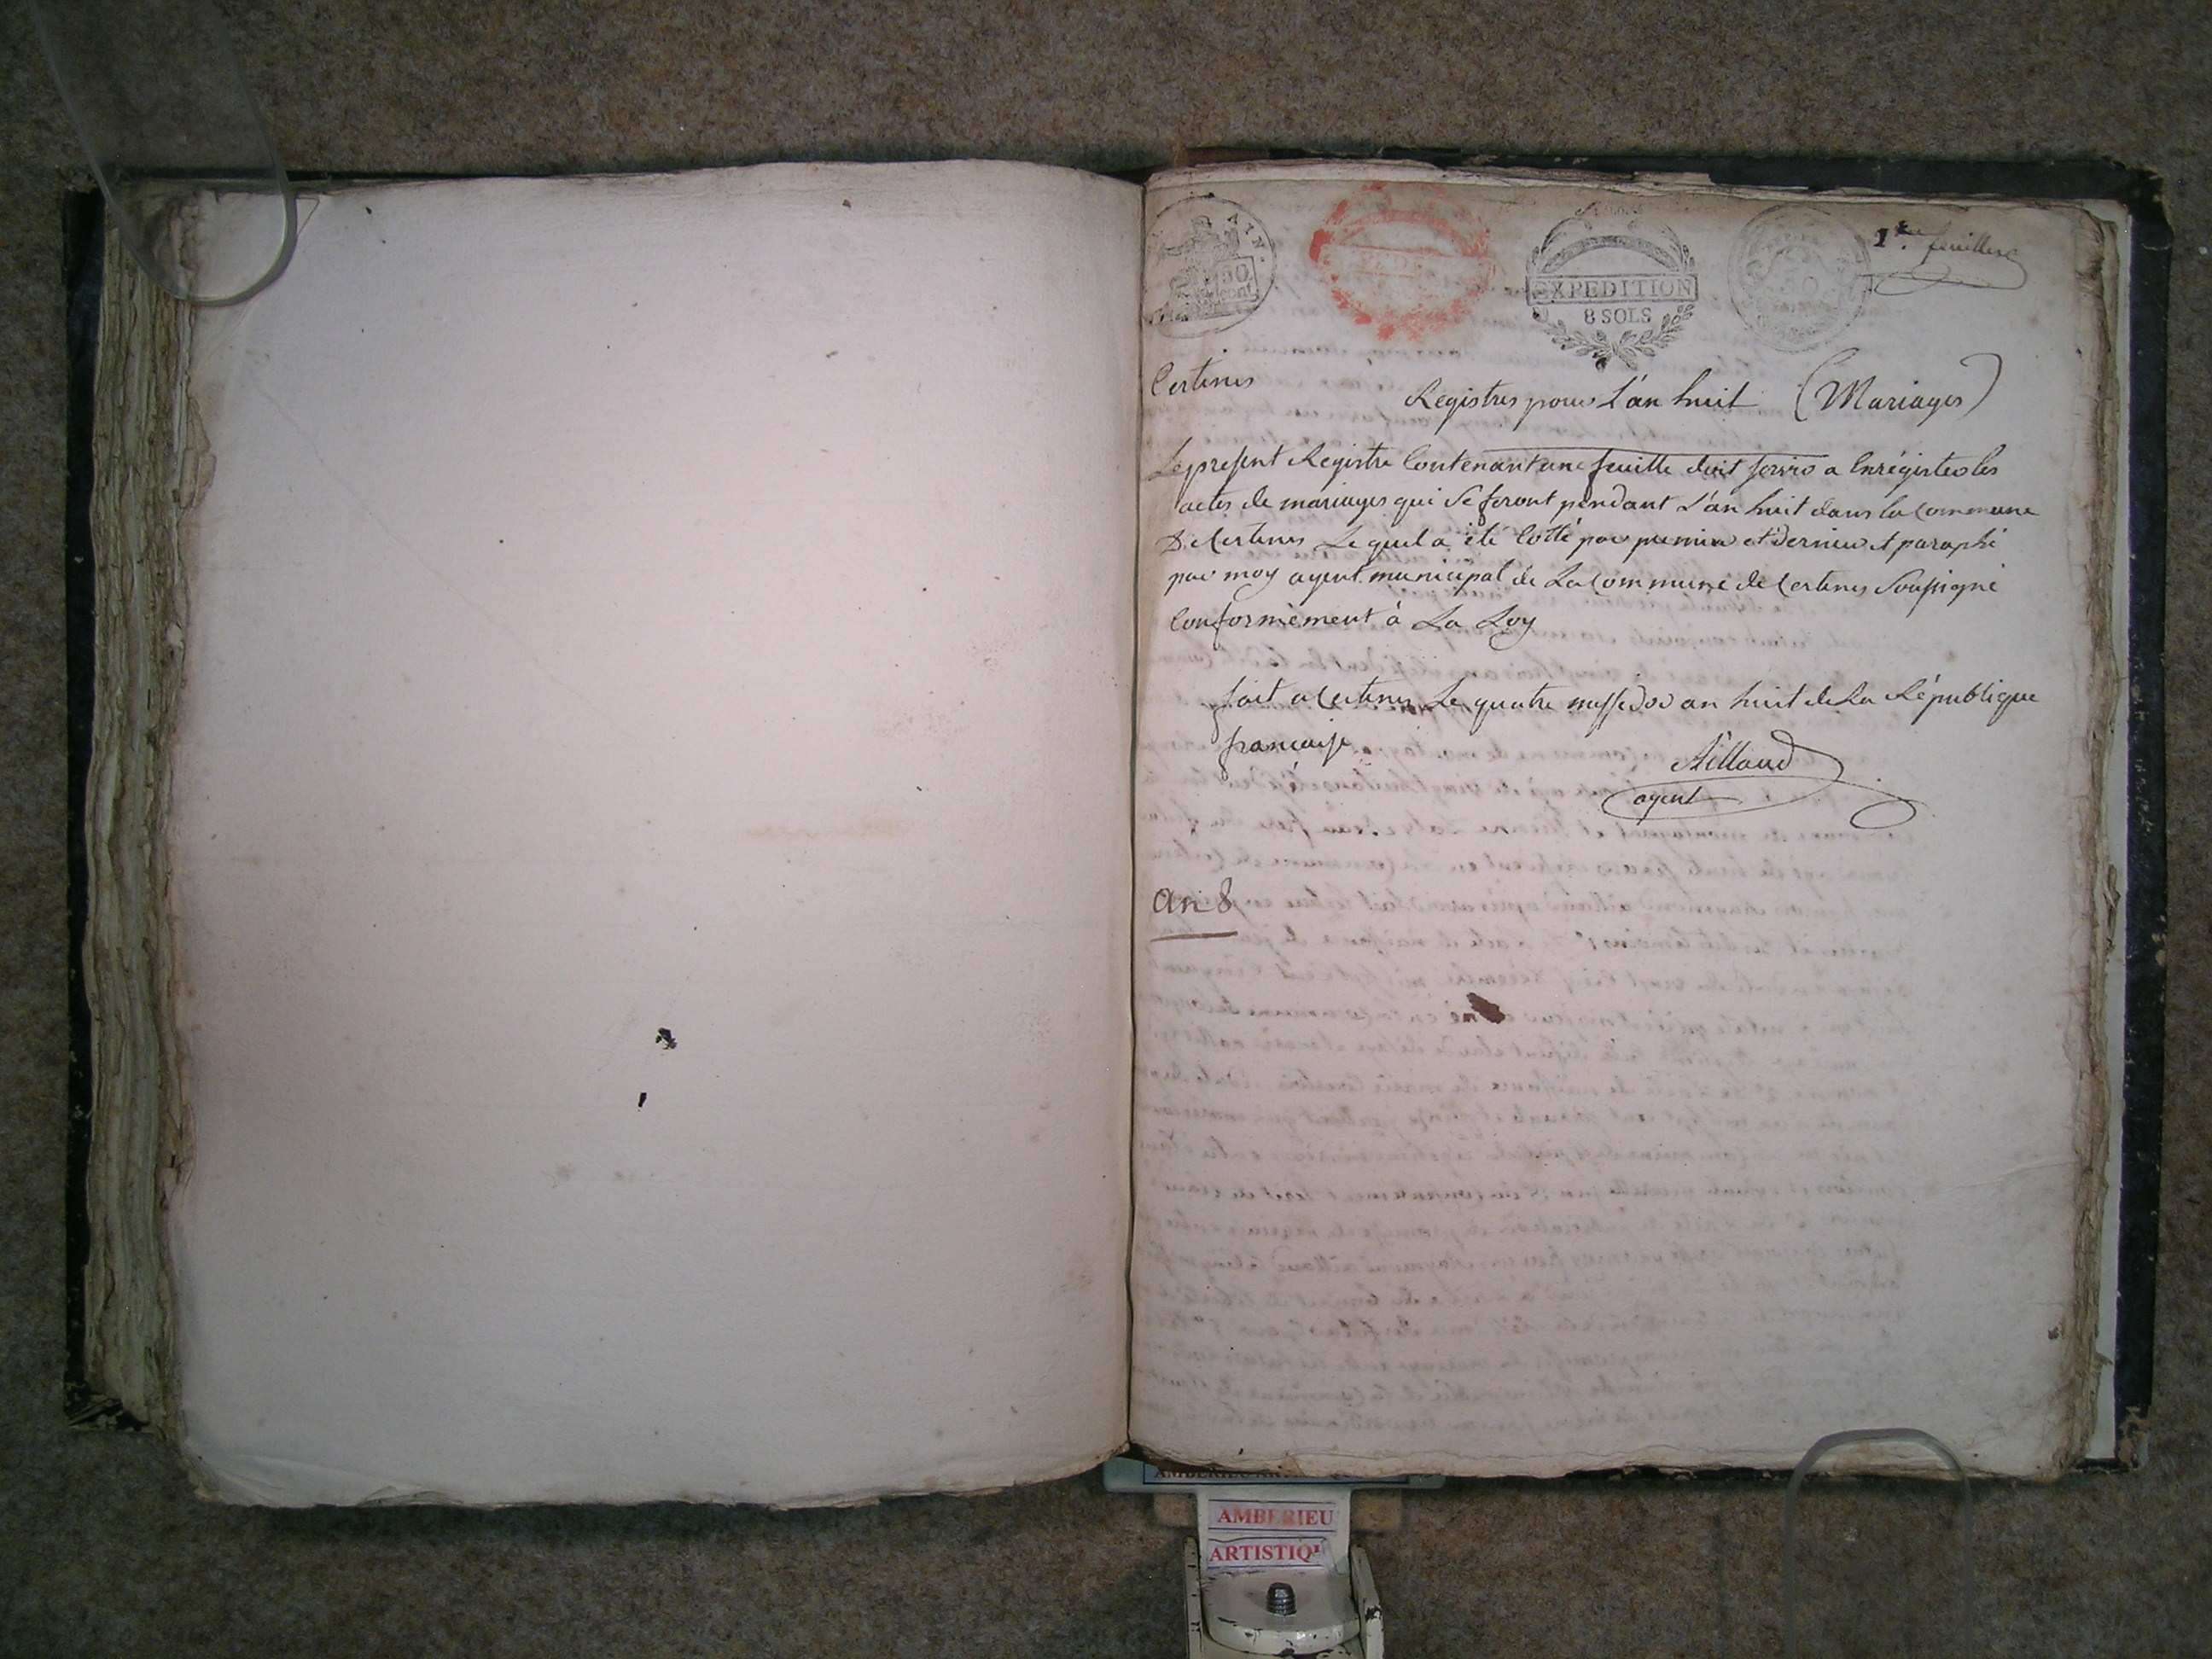 AIN.
50
cent
EXPEDITION
8 SOLS
50
1er feuillet
Certines
Registres pour L'an huit (Mariages)
Le présent Registre Contenant une feuille doit servir a Enrégistrer les
actes de mariages qui se feront pendant L'an huit dans la Commune
De Certines Lequel a été Cotté par premier et Dernier et paraphé
par moy agent municipal de La Commune de Certines Soussigné
Conformèment à La Loy
fait a Certines Le quatre messidor an huit de La République
française
agent
an 8
AMBERIEU
ARTISTIQ